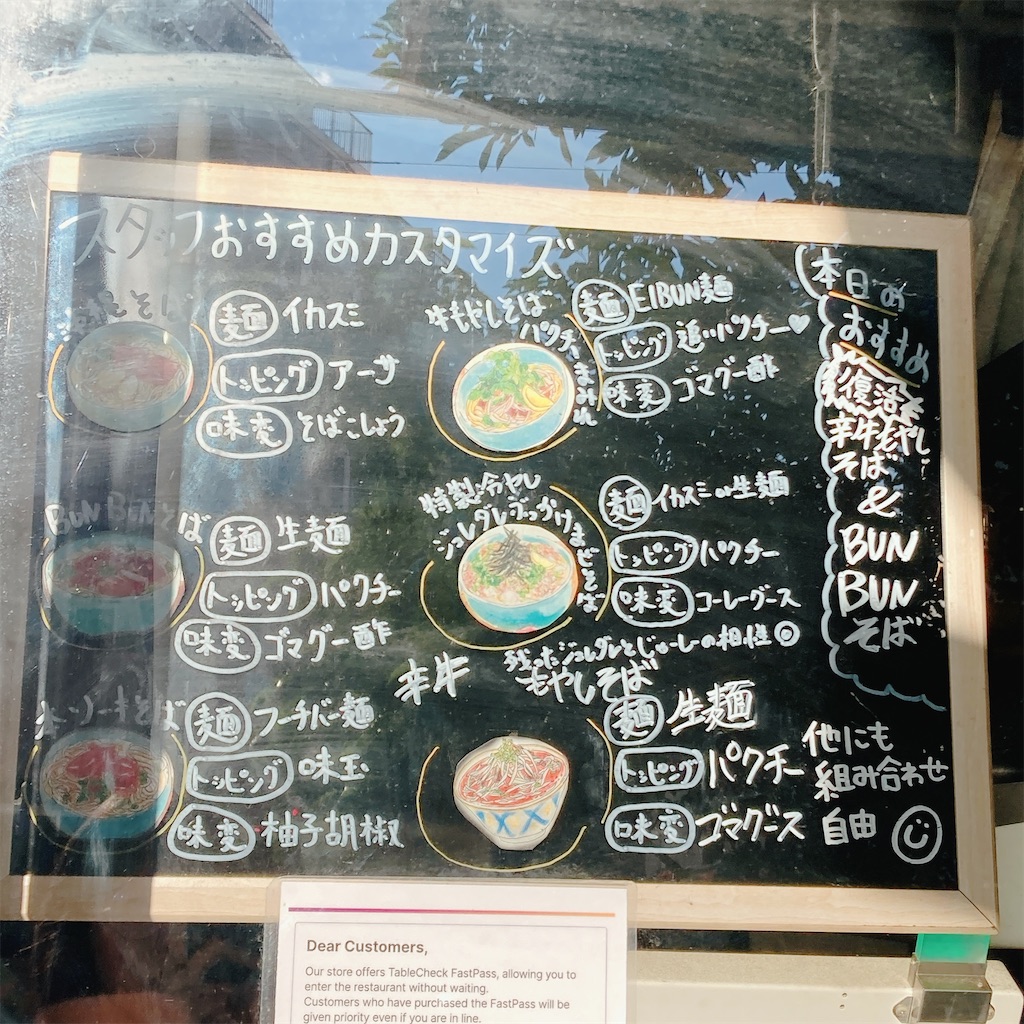 スタッフおすすめカスタマイズ
麺 イカスミ
トッピング アーサ
味変 そばこしょう
BUN BUNそば
麺 生麺
トッピング パクチー
味変 ゴマグー酢
本ソーキそば
麺 フーチバー麺
トッピング 味玉
味変 柚子胡椒
牛もやしそば
パクチーまみれ
麺 EIBUN麺
トッピング 追いパクチー♥
味変 ゴマグー酢
特製冷やし
ジュレダレぶっかけまぜそば
麺 イカスミor生麺
トッピング パクチー
味変 コーレーグース
残ったジュレダレとじゅーしーの相性◎
辛牛
もやしそば
麺 生麺
トッピング パクチー
味変 ゴマグース
本日の
おすすめ
復活
辛牛もやし
そば
&
BUN
BUN
そば
他にも
組み合わせ
自由
Dear Customers,
Our store offers TableCheck FastPass, allowing you to
enter the restaurant without waiting.
Customers who have purchased the FastPass will be
given priority even if you are in line.